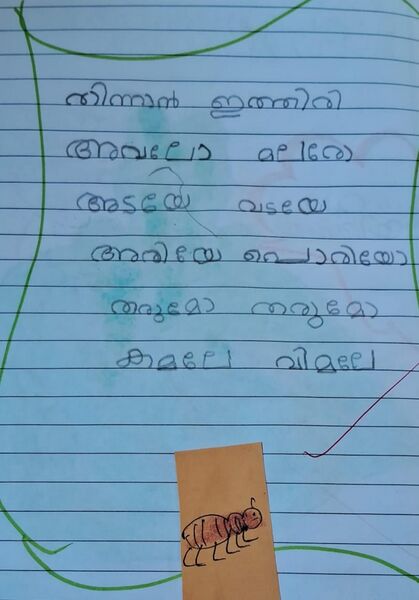 തിന്നാൻ ഇത്തിരി
അവലോ മലരോ
അടയേ വടയേ
അരിയേ പൊരിയോ
തരുമോ തരുമോ
കമലേ വിമലേ